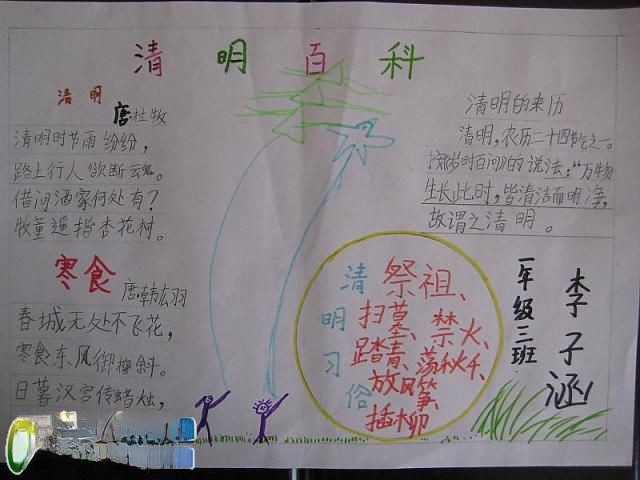 清明百科
清明
唐杜牧
清明时节雨纷纷，
路上行人欲断魂。
借问酒家何处有？
牧童遥指杏花村。
寒食
唐·韩厷羽
春城无处不飞花，
寒食东风御柳斜。
日暮汉宫传蜡烛，
清明的来历
清明，农历二十四节气之一。
按《岁时百问》的说法："万物
生长此时，皆清洁而明净，
故谓之清明。
清明习俗
祭祖、
扫墓、禁火、
踏青、荡秋千、
放风筝、
插柳
一年级三班
李子涵